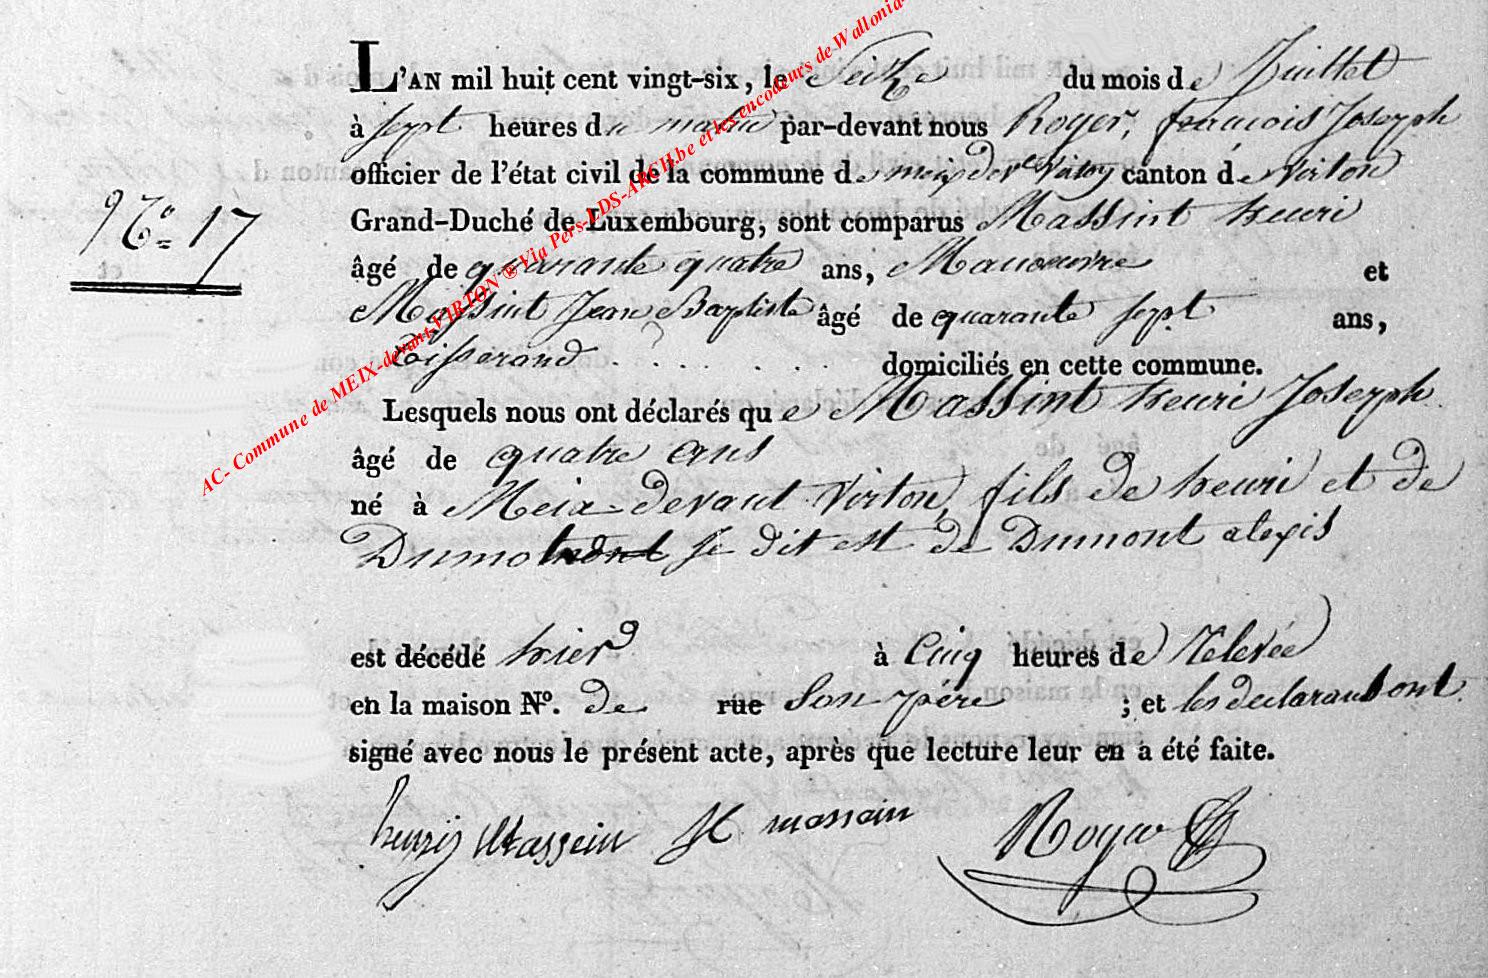 L'AN mil huit cent vingt-six, le Seize du mois de Juillet
à sept heures du matin par-devant nous Royer, francois Joseph
officier de l'état civil de la commune de meix devt Virton canton de Virton
Grand-Duché de Luxembourg, sont comparus Massint henri
N.o 17
âgé de quarante quatre ans, Manoeuvre et
Massint Jean Baptiste âgé de quarante sept ans,
Tisserand . . . . . . domiciliés en cette commune.
Lesquels nous ont déclarés que Massint henri Joseph
âgé de quatre ans
né à Meix-devant Virton, fils de henri et de
Dumont se dit est de Dumont alexis
est décédé hier à Cinq heures de Relevée
en la maison N.o de rue Son père ; et les declarants ont
signé avec nous le présent acte, après que lecture leur en a été faite.
henrij Massein massain Royer
AC- Commune de MEIX-devant-VIRTON ® Via Pers-LDS-ARCH.be et les encodeurs de Wallonia-